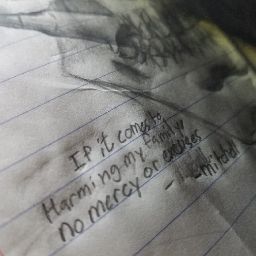 If it comes to
Harming my family
no mercy or excuses
-